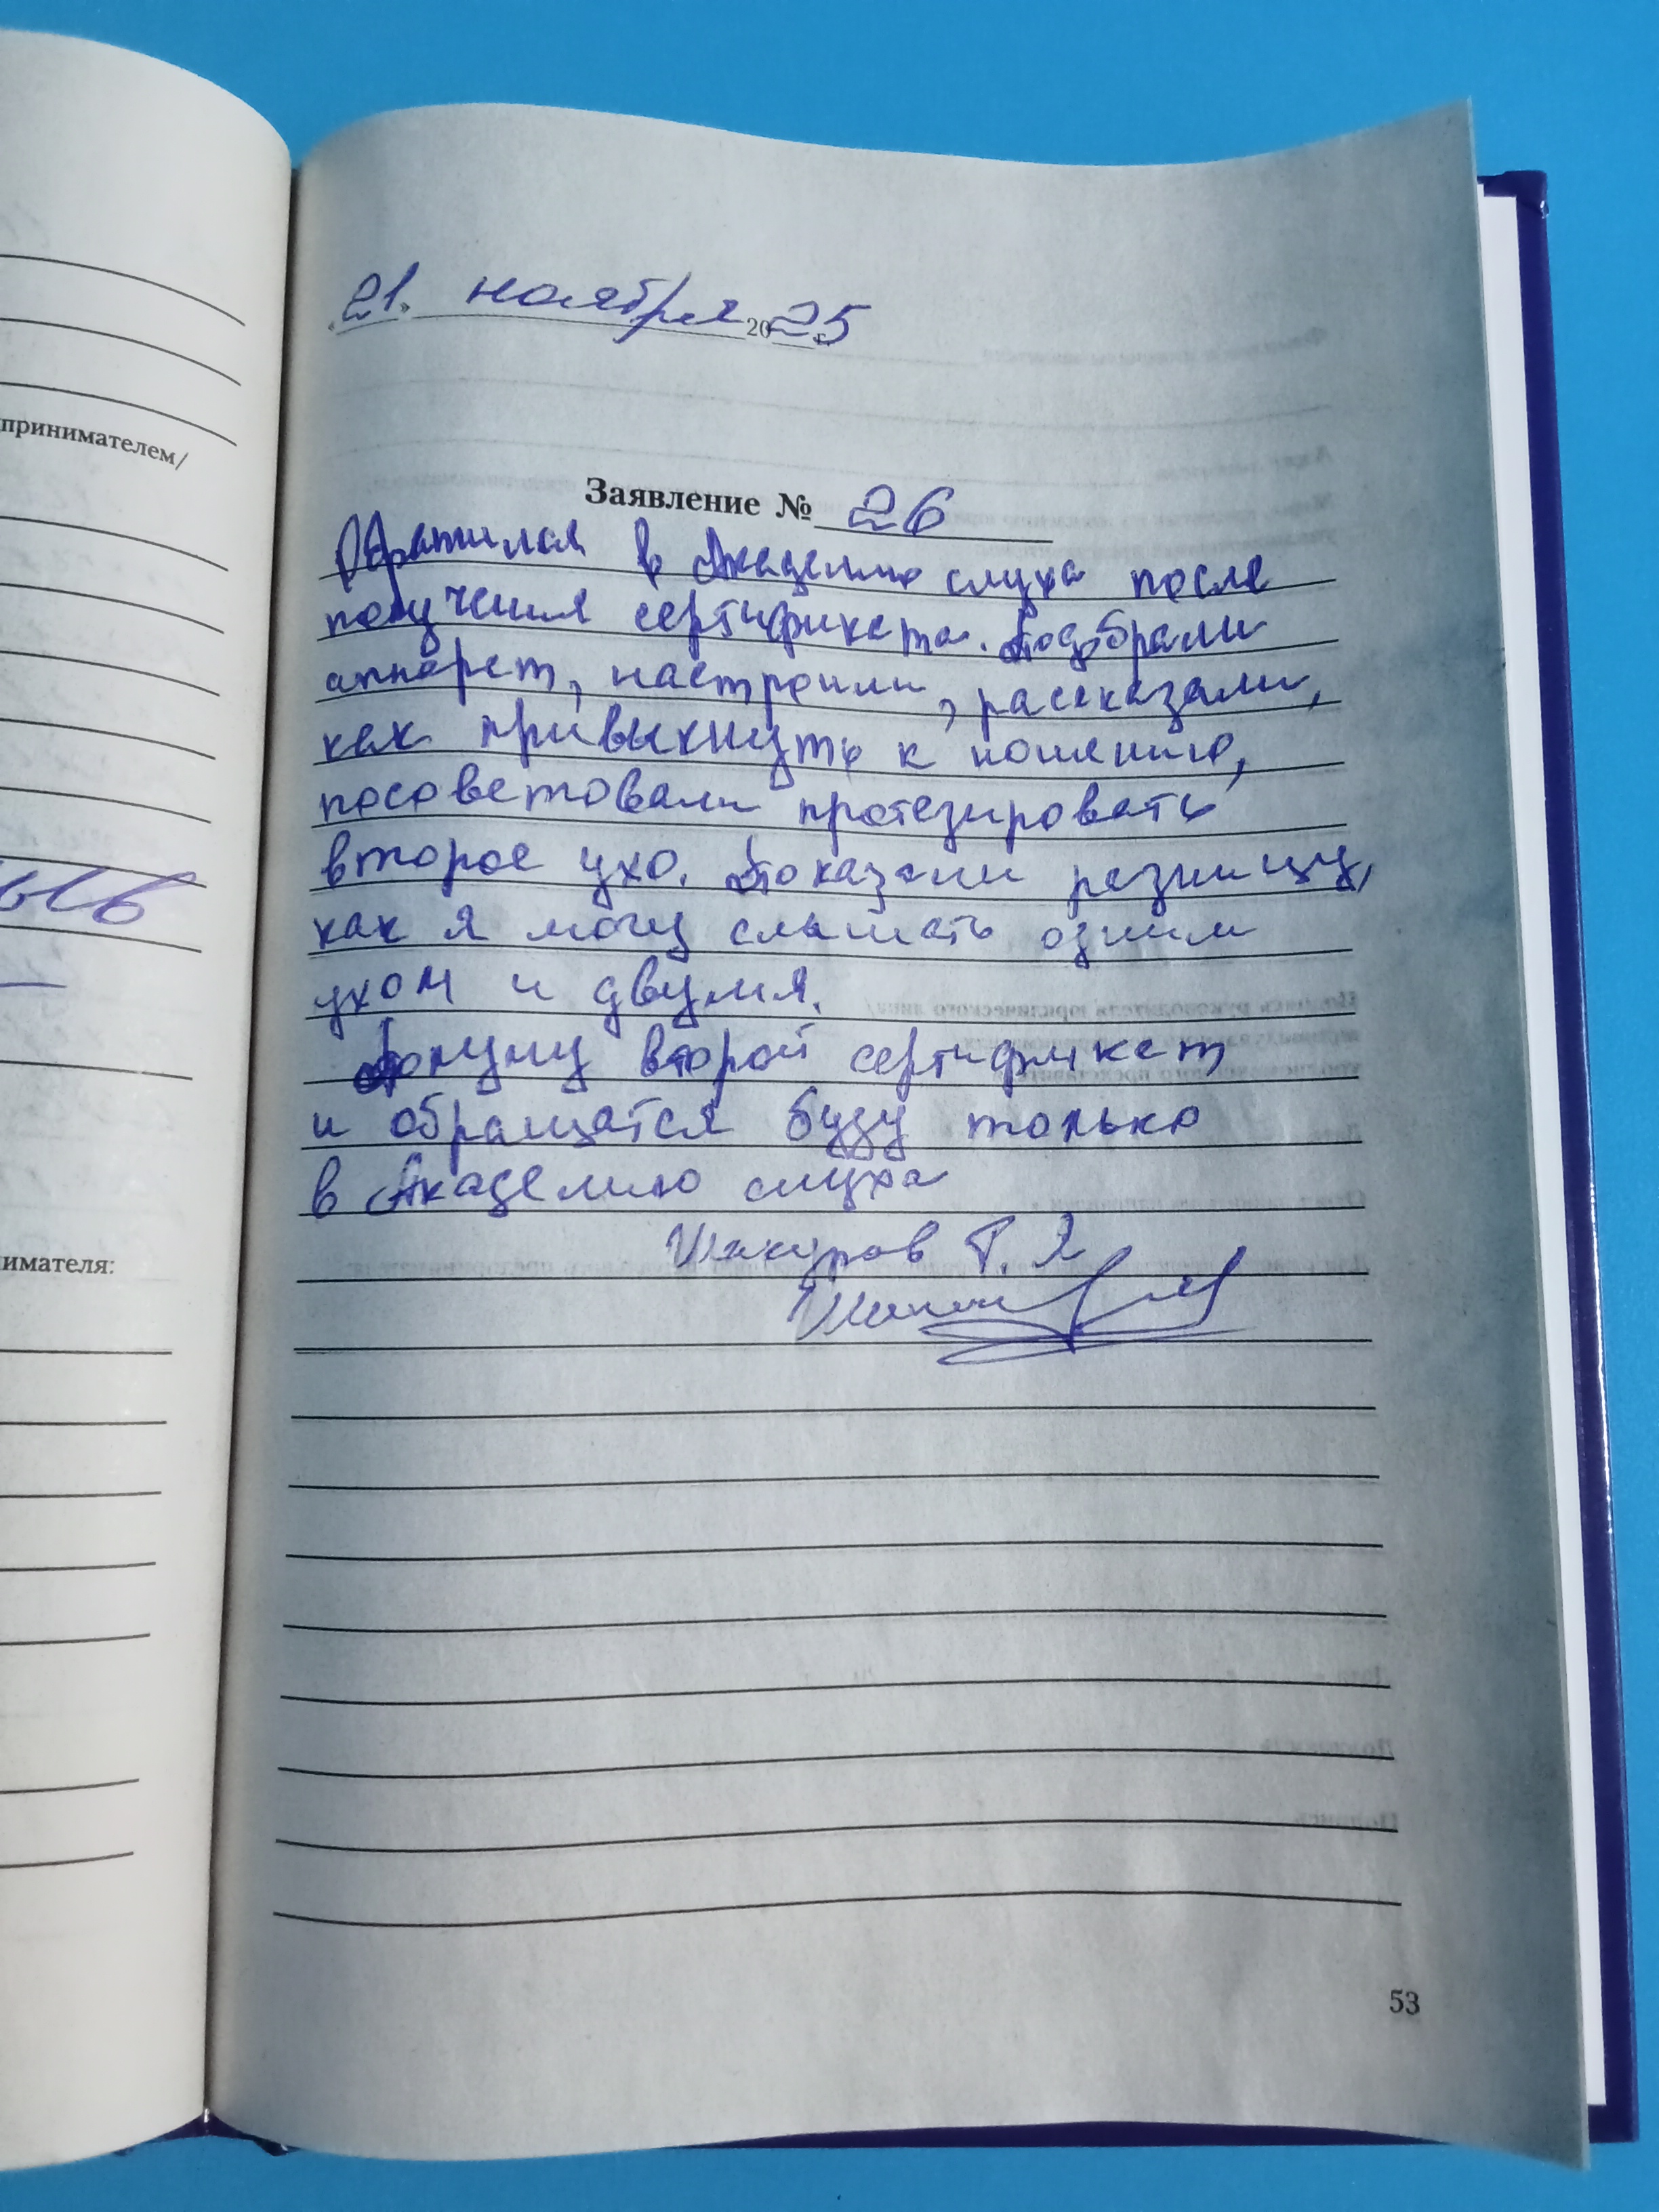 принимателем/
ыв
имателя:
«21» ноября 2025 г.
Заявление № 26
Обратился в Академию слуха после
получения сертификата. Подобрали
аппарат, настроили, рассказали,
как привыкнуть к ношению,
посоветовали протезировать
второе ухо. Показали разницу,
как я могу слышать одним
ухом и двумя.
Получу второй сертификат
и обращатся буду только
в Академию слуха
Шакуров Г. Я
53